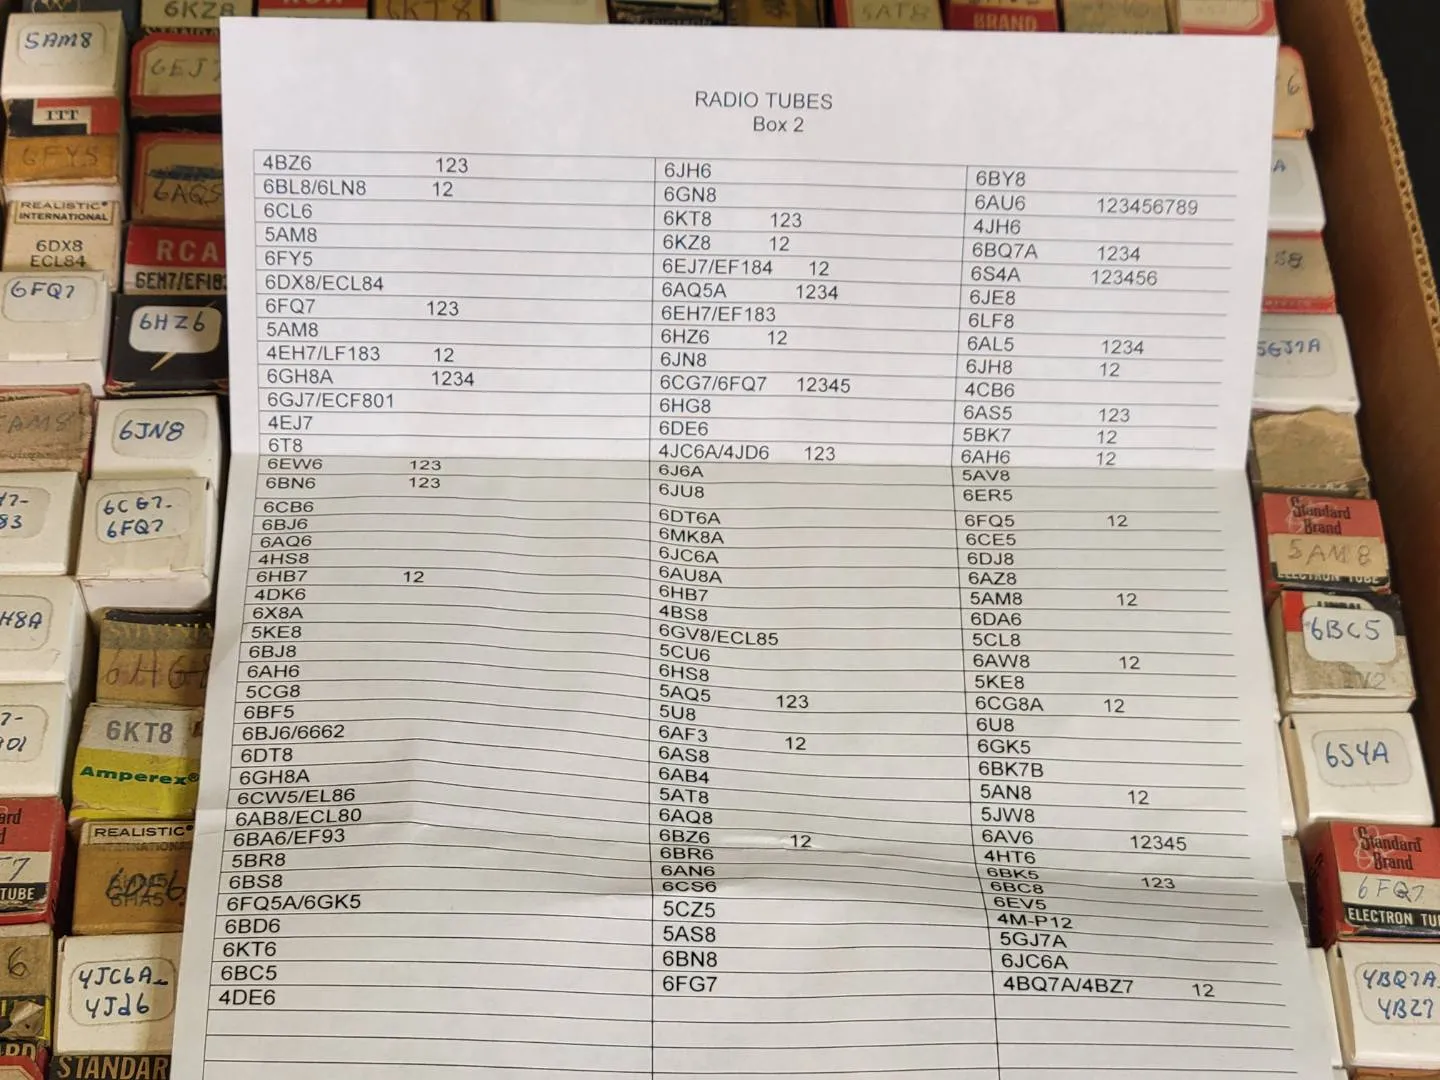 RADIO TUBES
Box 2
4BZ6 123
6BL8/6LN8 12
6CL6
5AM8
6FY5
6DX8/ECL84
6FQ7 123
5AM8
4EH7/LF183 12
6GH8A 1234
6GJ7/ECF801
4EJ7
6T8
6EW6 123
6BN6 123
6CB6
6BJ6
6AQ6
4HS8
6HB7 12
4DK6
6X8A
5KE8
6BJ8
6AH6
5CG8
6BF5
6BJ6/6662
6DT8
6GH8A
6CW5/EL86
6AB8/ECL80
6BA6/EF93
5BR8
6BS8
6FQ5A/6GK5
6BD6
6KT6
6BC5
4DE6
6JH6
6GN8
6KT8 123
6KZ8 12
6EJ7/EF184 12
6AQ5A 1234
6EH7/EF183
6HZ6 12
6JN8
6CG7/6FQ7 12345
6HG8
6DE6
4JC6A/4JD6 123
6J6A
6JU8
6DT6A
6MK8A
6JC6A
6AU8A
6HB7
4BS8
6GV8/ECL85
5CU6
6HS8
5AQ5 123
5U8
6AF3 12
6AS8
6AB4
5AT8
6AQ8
6BZ6 12
6BR6
6AN6
6CS6
5CZ5
5AS8
6BN8
6FG7
6BY8
6AU6 123456789
4JH6
6BQ7A 1234
6S4A 123456
6JE8
6LF8
6AL5 1234
6JH8 12
4CB6
6AS5 123
5BK7 12
6AH6 12
5AV8
6ER5
6FQ5 12
6CE5
6DJ8
6AZ8
5AM8 12
6DA6
5CL8
6AW8 12
5KE8
6CG8A 12
6U8
6GK5
6BK7B
5AN8 12
5JW8
6AV6 12345
4HT6
6BK5 123
6BC8
6EV5
4M-P12
5GJ7A
6JC6A
4BQ7A/4BZ7 12
6KZ8
6KT8
5AT8
BRAND
5AM8
6EJ7
ITT
6FY5
6AQ5
REALISTIC
INTERNATIONAL
6DX8
ECL84
RCA
6EH7/EF183
6FQ7
6HZ6
AM8
6JN8
6CG7-
6FQ7
H8A
SYLVANIA
6HG8
6KT8
Amperex
REALISTIC
6DE6
TUBE
4JC6A-
4Jd6
STANDARD
5GJ7A
Standard
Brand
5AM8
ELECTRON TUBE
6BC5
6S4A
Standard
Brand
6FQ7
ELECTRON TU
4BQ7A
4BZ7